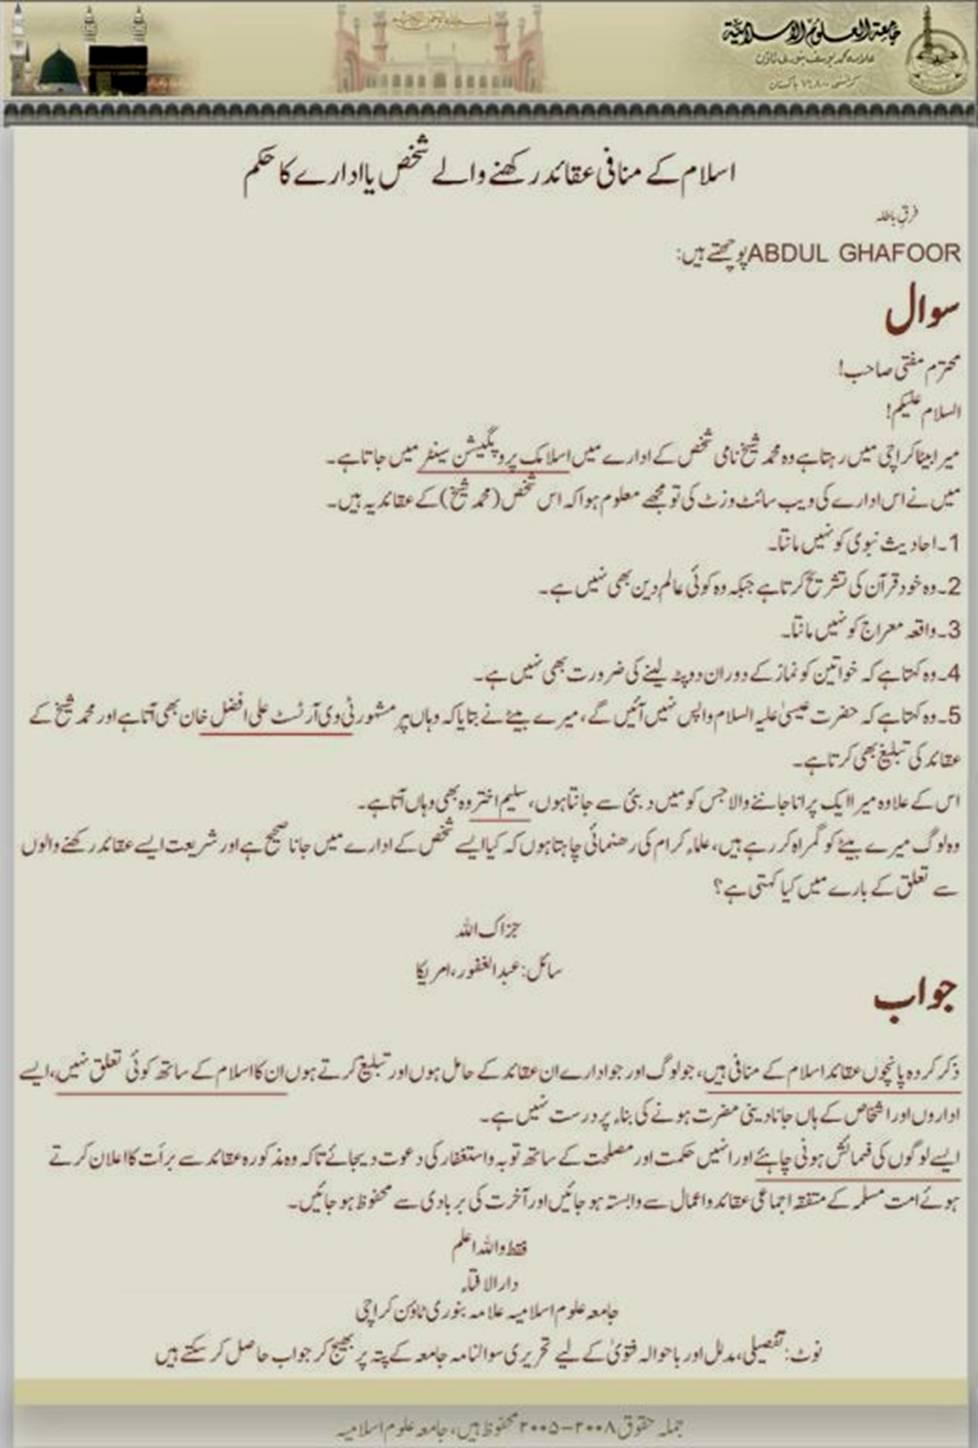 جامعۃ العلوم الاسلامیۃ
علامہ محمد یوسف بنوری ٹاؤن
کراچی ۷۴۸۰۰ پاکستان
اسلام کے منافی عقائد رکھنے والے شخص یا ادارے کا حکم
فرقِ باطلہ
ABDUL GHAFOOR پوچھتے ہیں:
سوال
محترم مفتی صاحب!
السلام علیکم!
میرا بیٹا کراچی میں رہتا ہے وہ محمد شیخ نامی شخص کے ادارے میں اسلامک پروپگیشن سینٹر میں جاتا ہے۔
میں نے اس ادارے کی ویب سائٹ وزٹ کی تو مجھے معلوم ہوا کہ اس شخص (محمد شیخ) کے عقائد یہ ہیں۔
1۔ احادیث نبوی کو نہیں مانتا۔
2۔ وہ خود قرآن کی تشریح کرتا ہے جبکہ وہ کوئی عالم دین بھی نہیں ہے۔
3۔ واقعہ معراج کو نہیں مانتا۔
4۔ وہ کہتا ہے کہ خواتین کو نماز کے دوران دوپٹہ لینے کی ضرورت بھی نہیں ہے۔
5۔ وہ کہتا ہے کہ حضرت عیسیٰ علیہ السلام واپس نہیں آئیں گے، میرے بیٹے نے بتایا کہ وہاں پر مشہور ٹی وی آرٹسٹ علی افضل خان بھی آتا ہے اور محمد شیخ کے
عقائد کی تبلیغ بھی کرتا ہے۔
اس کے علاوہ میرا ایک پرانا جاننے والا جس کو میں دبئی سے جانتا ہوں، سلیم اختر وہ بھی وہاں آتا ہے۔
وہ لوگ میرے بیٹے کو گمراہ کر رہے ہیں، علماء کرام کی رہنمائی چاہتا ہوں کہ کیا ایسے شخص کے ادارے میں جانا صحیح ہے اور شریعت ایسے عقائد رکھنے والوں
سے تعلق کے بارے میں کیا کہتی ہے؟
جزاک اللہ
سائل: عبدالغفور، امریکا
جواب
ذکر کردہ پانچوں عقائد اسلام کے منافی ہیں، جو لوگ اور جو ادارے ان عقائد کے حامل ہوں اور تبلیغ کرتے ہوں ان کا اسلام کے ساتھ کوئی تعلق نہیں، ایسے
اداروں اور اشخاص کے ہاں جانا دینی مضرت ہونے کی بناء پر درست نہیں ہے۔
ایسے لوگوں کی فہمائش ہونی چاہئے اور انہیں حکمت اور مصلحت کے ساتھ توبہ و استغفار کی دعوت دیجائے تاکہ وہ مذکورہ عقائد سے برأت کا اعلان کرتے
ہوئے امت مسلمہ کے متفقہ اجماعی عقائد و اعمال سے وابستہ ہو جائیں اور آخرت کی بربادی سے محفوظ ہو جائیں۔
فقط واللہ اعلم
دارالافتاء
جامعہ علوم اسلامیہ علامہ بنوری ٹاؤن کراچی
نوٹ: تفصیلی، مدلل اور باحوالہ فتویٰ کے لیے تحریری سوالنامہ جامعہ کے پتہ پر بھیج کر جواب حاصل کر سکتے ہیں
جملہ حقوق ۲۰۰۸-۲۰۰۵ محفوظ ہیں، جامعہ علوم اسلامیہ